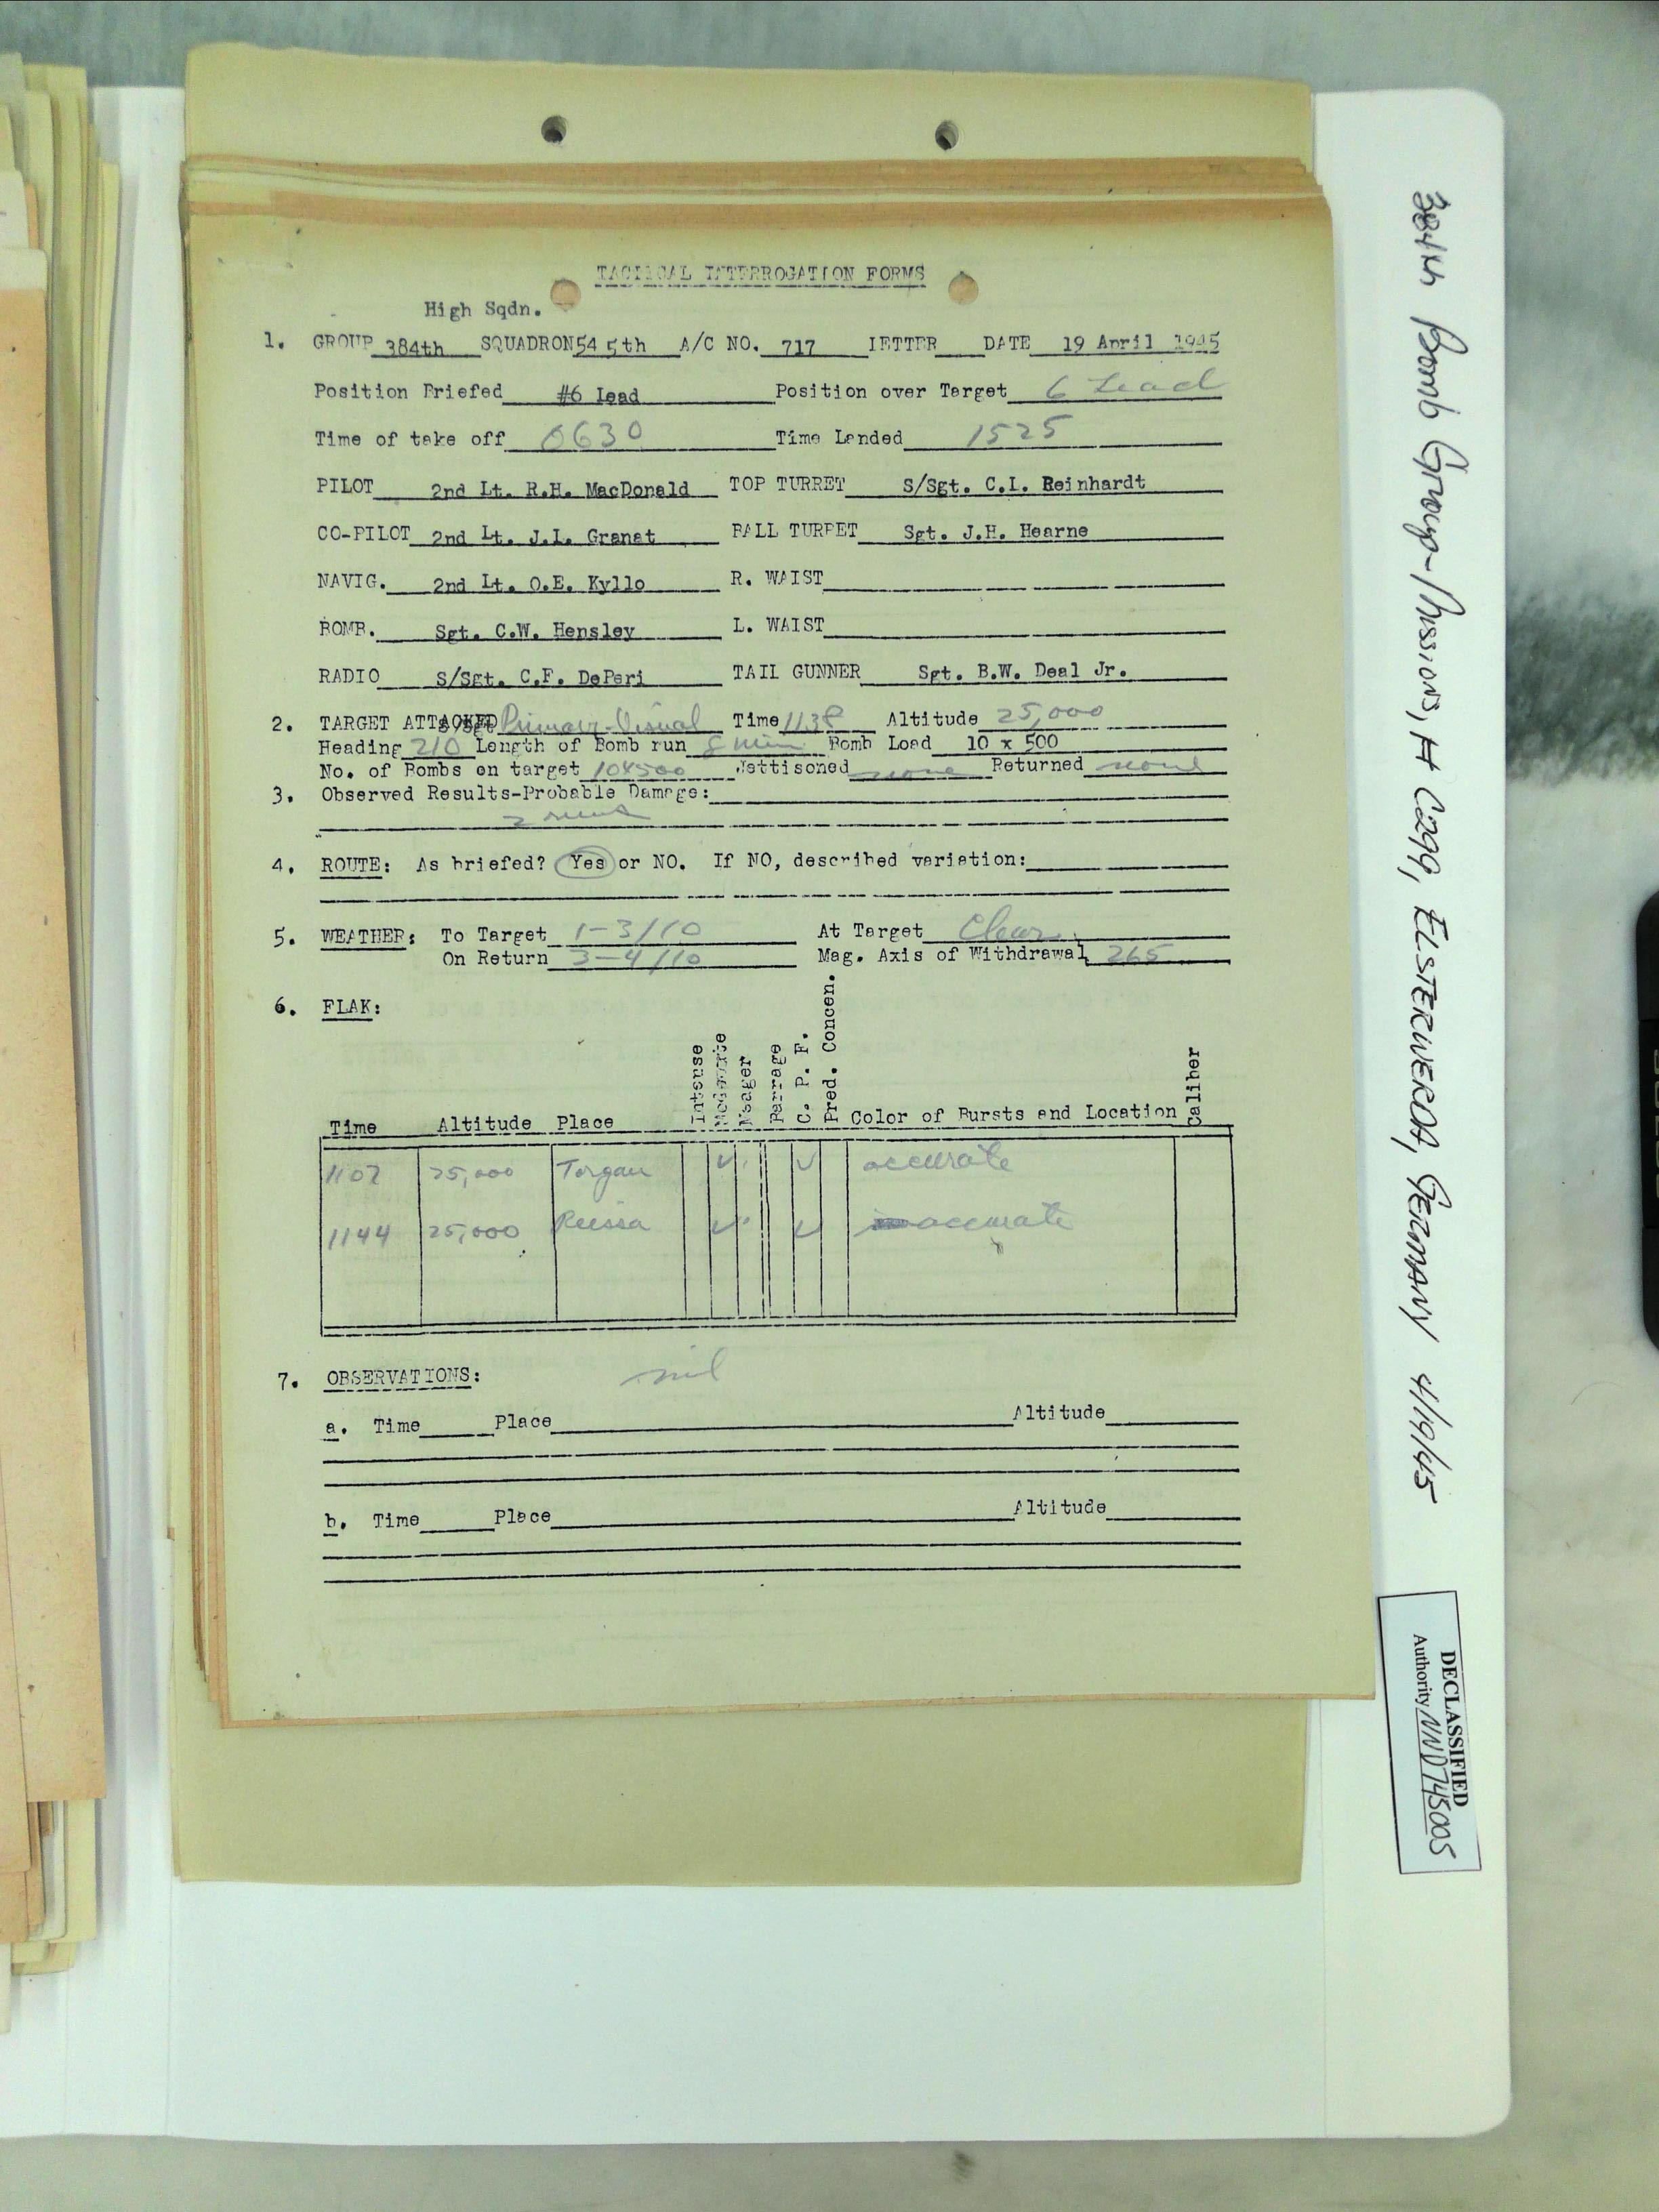 TACTICAL INTERROGATION FORMS
High Sqdn.
1. GROUP 384th SQUADRON 545th A/C NO. 717 LETTER DATE 19 April 1945
Position Briefed #6 Lead Position over Target 6 Lead
Time of take off 0630 Time Landed 1525
PILOT 2nd Lt. R.H. MacDonald TOP TURRET S/Sgt. C.I. Reinhardt
CO-PILOT 2nd Lt. J.L. Granat BALL TURRET Sgt. J.H. Hearne
NAVIG. 2nd Lt. O.E. Kyllo R. WAIST
BOMB. Sgt. C.W. Hensley L. WAIST
RADIO S/Sgt. C.F. DePeri TAIL GUNNER Sgt. B.W. Deal Jr.
2. TARGET ATTACKED Primary-Visual Time 1138 Altitude 25,000
Heading 210 Length of Bomb run 8 min Bomb Load 10 x 500
No. of Bombs on target 10x500 Jettisoned none Returned none
3. Observed Results-Probable Damage:
4. ROUTE: As briefed? Yes or NO. If NO, described variation:
5. WEATHER: To Target 1-3/10 At Target Clear
On Return 3-4/10 Mag. Axis of Withdrawal 265
6. FLAK:
Time Altitude Place Intense Moderate Meager Barrage C. P. F. Pred. Concen. Color of Bursts and Location Caliber
1107 25,000 Torgau ✓ ✓ accurate
1144 25,000 Riessa ✓ ✓ accurate
7. OBSERVATIONS: nil
a. Time Place Altitude
b. Time Place Altitude
384th Bomb Group-Mission, # C299, ELSTERWERDA, GERMANY 4/19/45
DECLASSIFIED
Authority NND745005